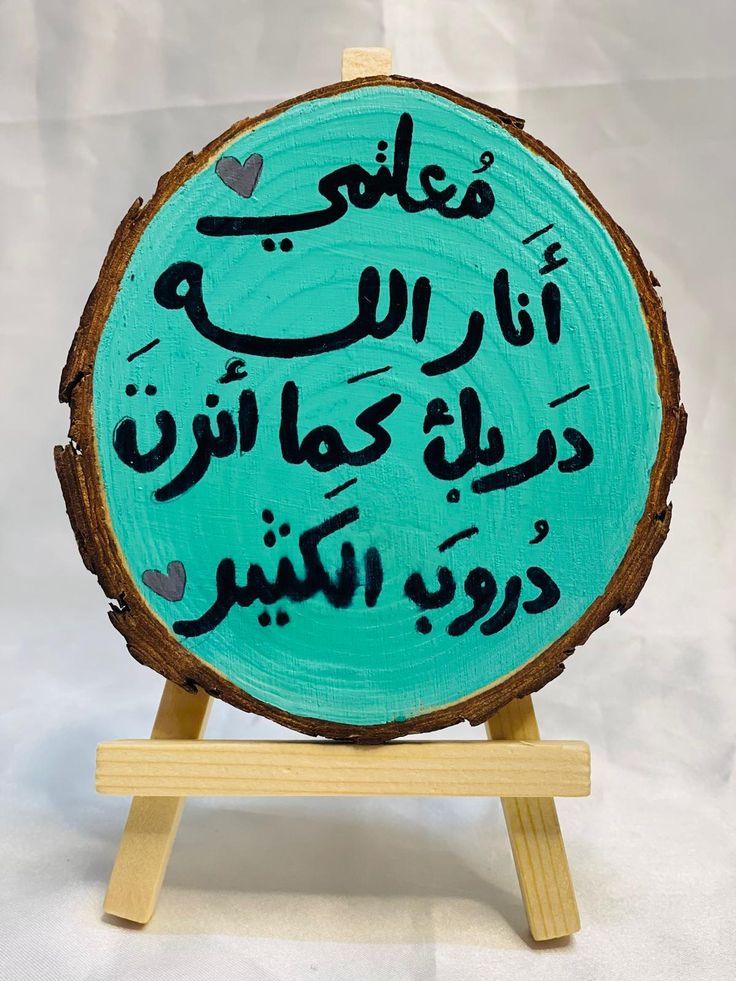 مُعلمتي
أَنار الله
دَربكْ كَما أنرتَ
دُروبَ الكَثير